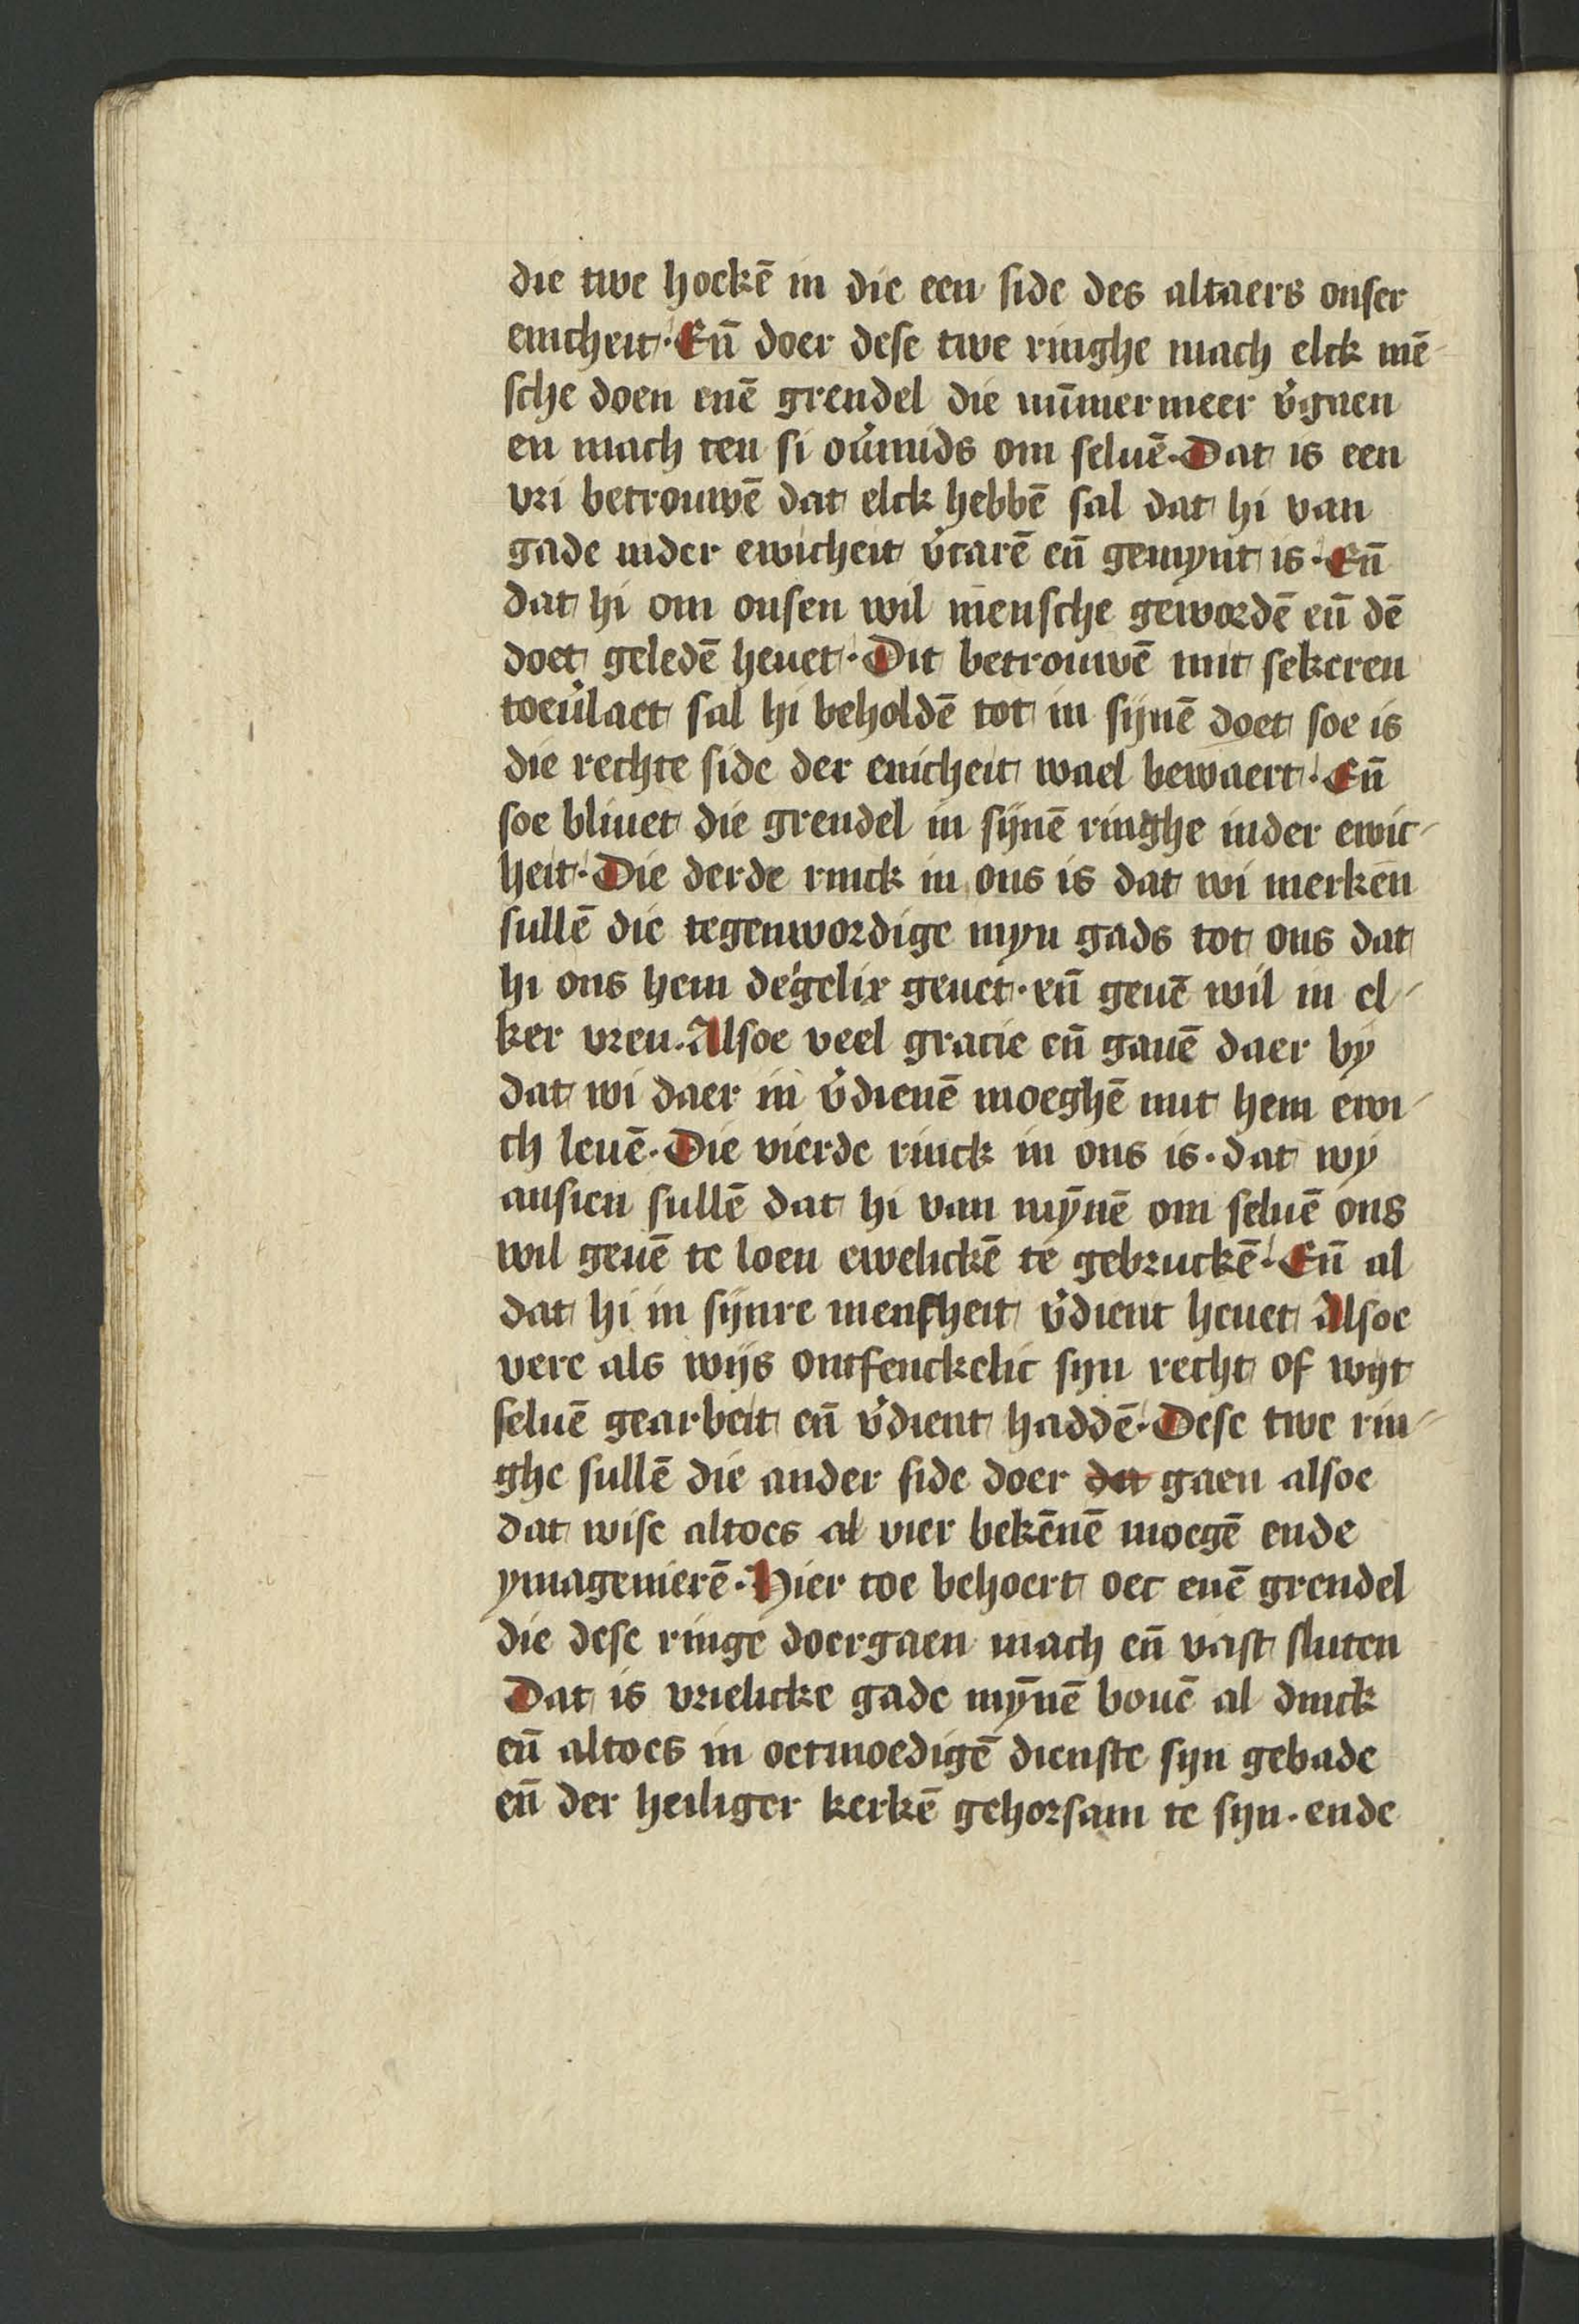 die twe hockē in die een side des altaers onser
enicheit· Eñ doer dese twe ringhe mach elck mē-
sche doen enē grendel die nūmermeer v̉gaen
en mach ten si ou̓mids om seluē· Dat is een
vri betrouwē dat elck hebbē sal dat hi van
gade inder ewicheit v̉carē eñ gemynt is· Eñ
dat hi om onsen wil mensche gewordē eñ dē
doet geledē heuet· Dit betrouwē mit sekeren
toeu̓laet sal hi beholdē tot in sijnē doet soe is
die rechte side der enicheit wael bewaert· Eñ
soe bliuet die grendel in sijnē ringhe inder ewic-
heit· Die derde rinck in ons is dat wi merken
sullē die tegenwordige myn gads tot ons dat
hi ons hem degelix geuet· eñ geuē wil in el-
ker vren· Alsoe veel gracie eñ gauē daer by
dat wi daer in v̉dienē moeghē mit hem ewi-
ch leuē· Die vierde rinck in ons is· dat wy
ansien sullē dat hi van mȳnē om seluē ons
wil geuē te loen ewelickē te gebruckē· Eñ al
dat hi in sijnre menscheit v̉dient heuet Alsoe
vere als wijs ontfenckelic syn recht of wijt
seluē gearbeit eñ v̉dient haddē· Dese twe rin-
ghe sullē die ander side doer da gaen alsoe
dat wise altoes al vier bekēnē moegē ende
ymagenierē· Hier toe behoert oec enē grendel
die dese ringe doergaen mach eñ vast sluten
Dat is vrielicke gade mȳnē bouē al dinck
eñ altoes in oetmoedigē dienste syn gebade
eñ der heiliger kerkē gehorsam te syn· ende